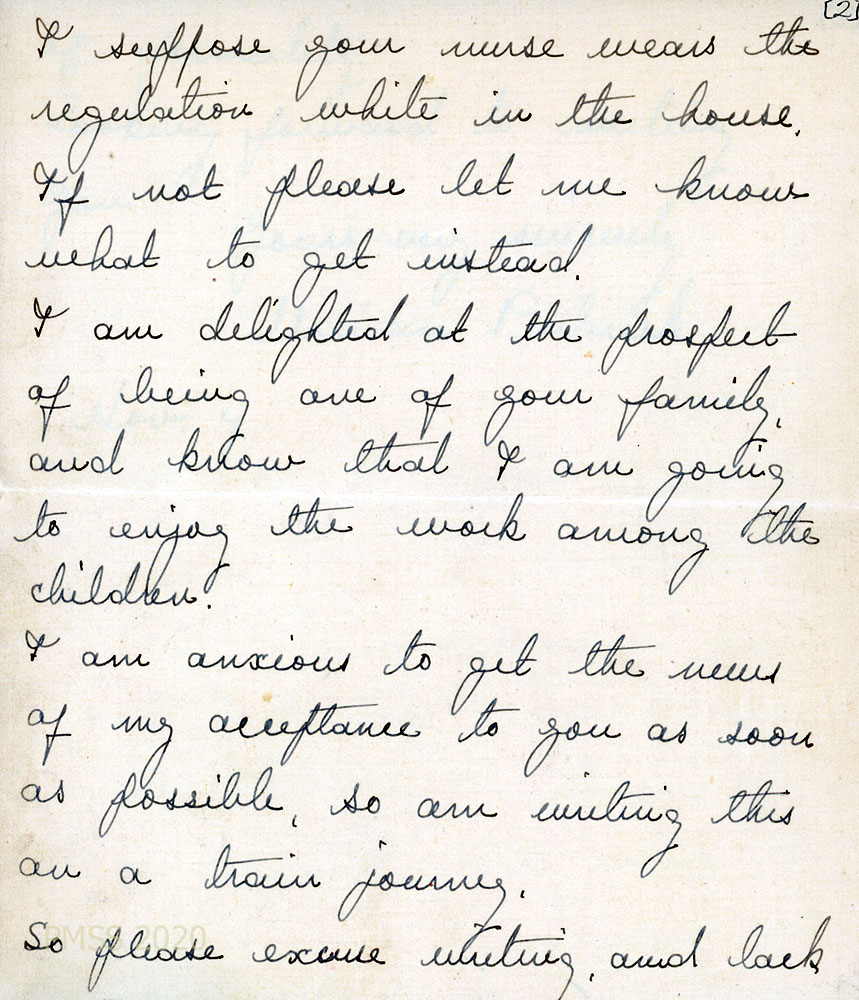 [2]
I suppose your nurse wears the
regulation white in the house.
If not please let me know
what to get instead.
I am delighted at the prospect
of being one of your family,
and know that I am going
to enjoy the work among the
children.
I am anxious to get the news
of my acceptance to you as soon
as possible, so am writing this
on a train journey.
So please excuse writing, and lack
PMSS 2020